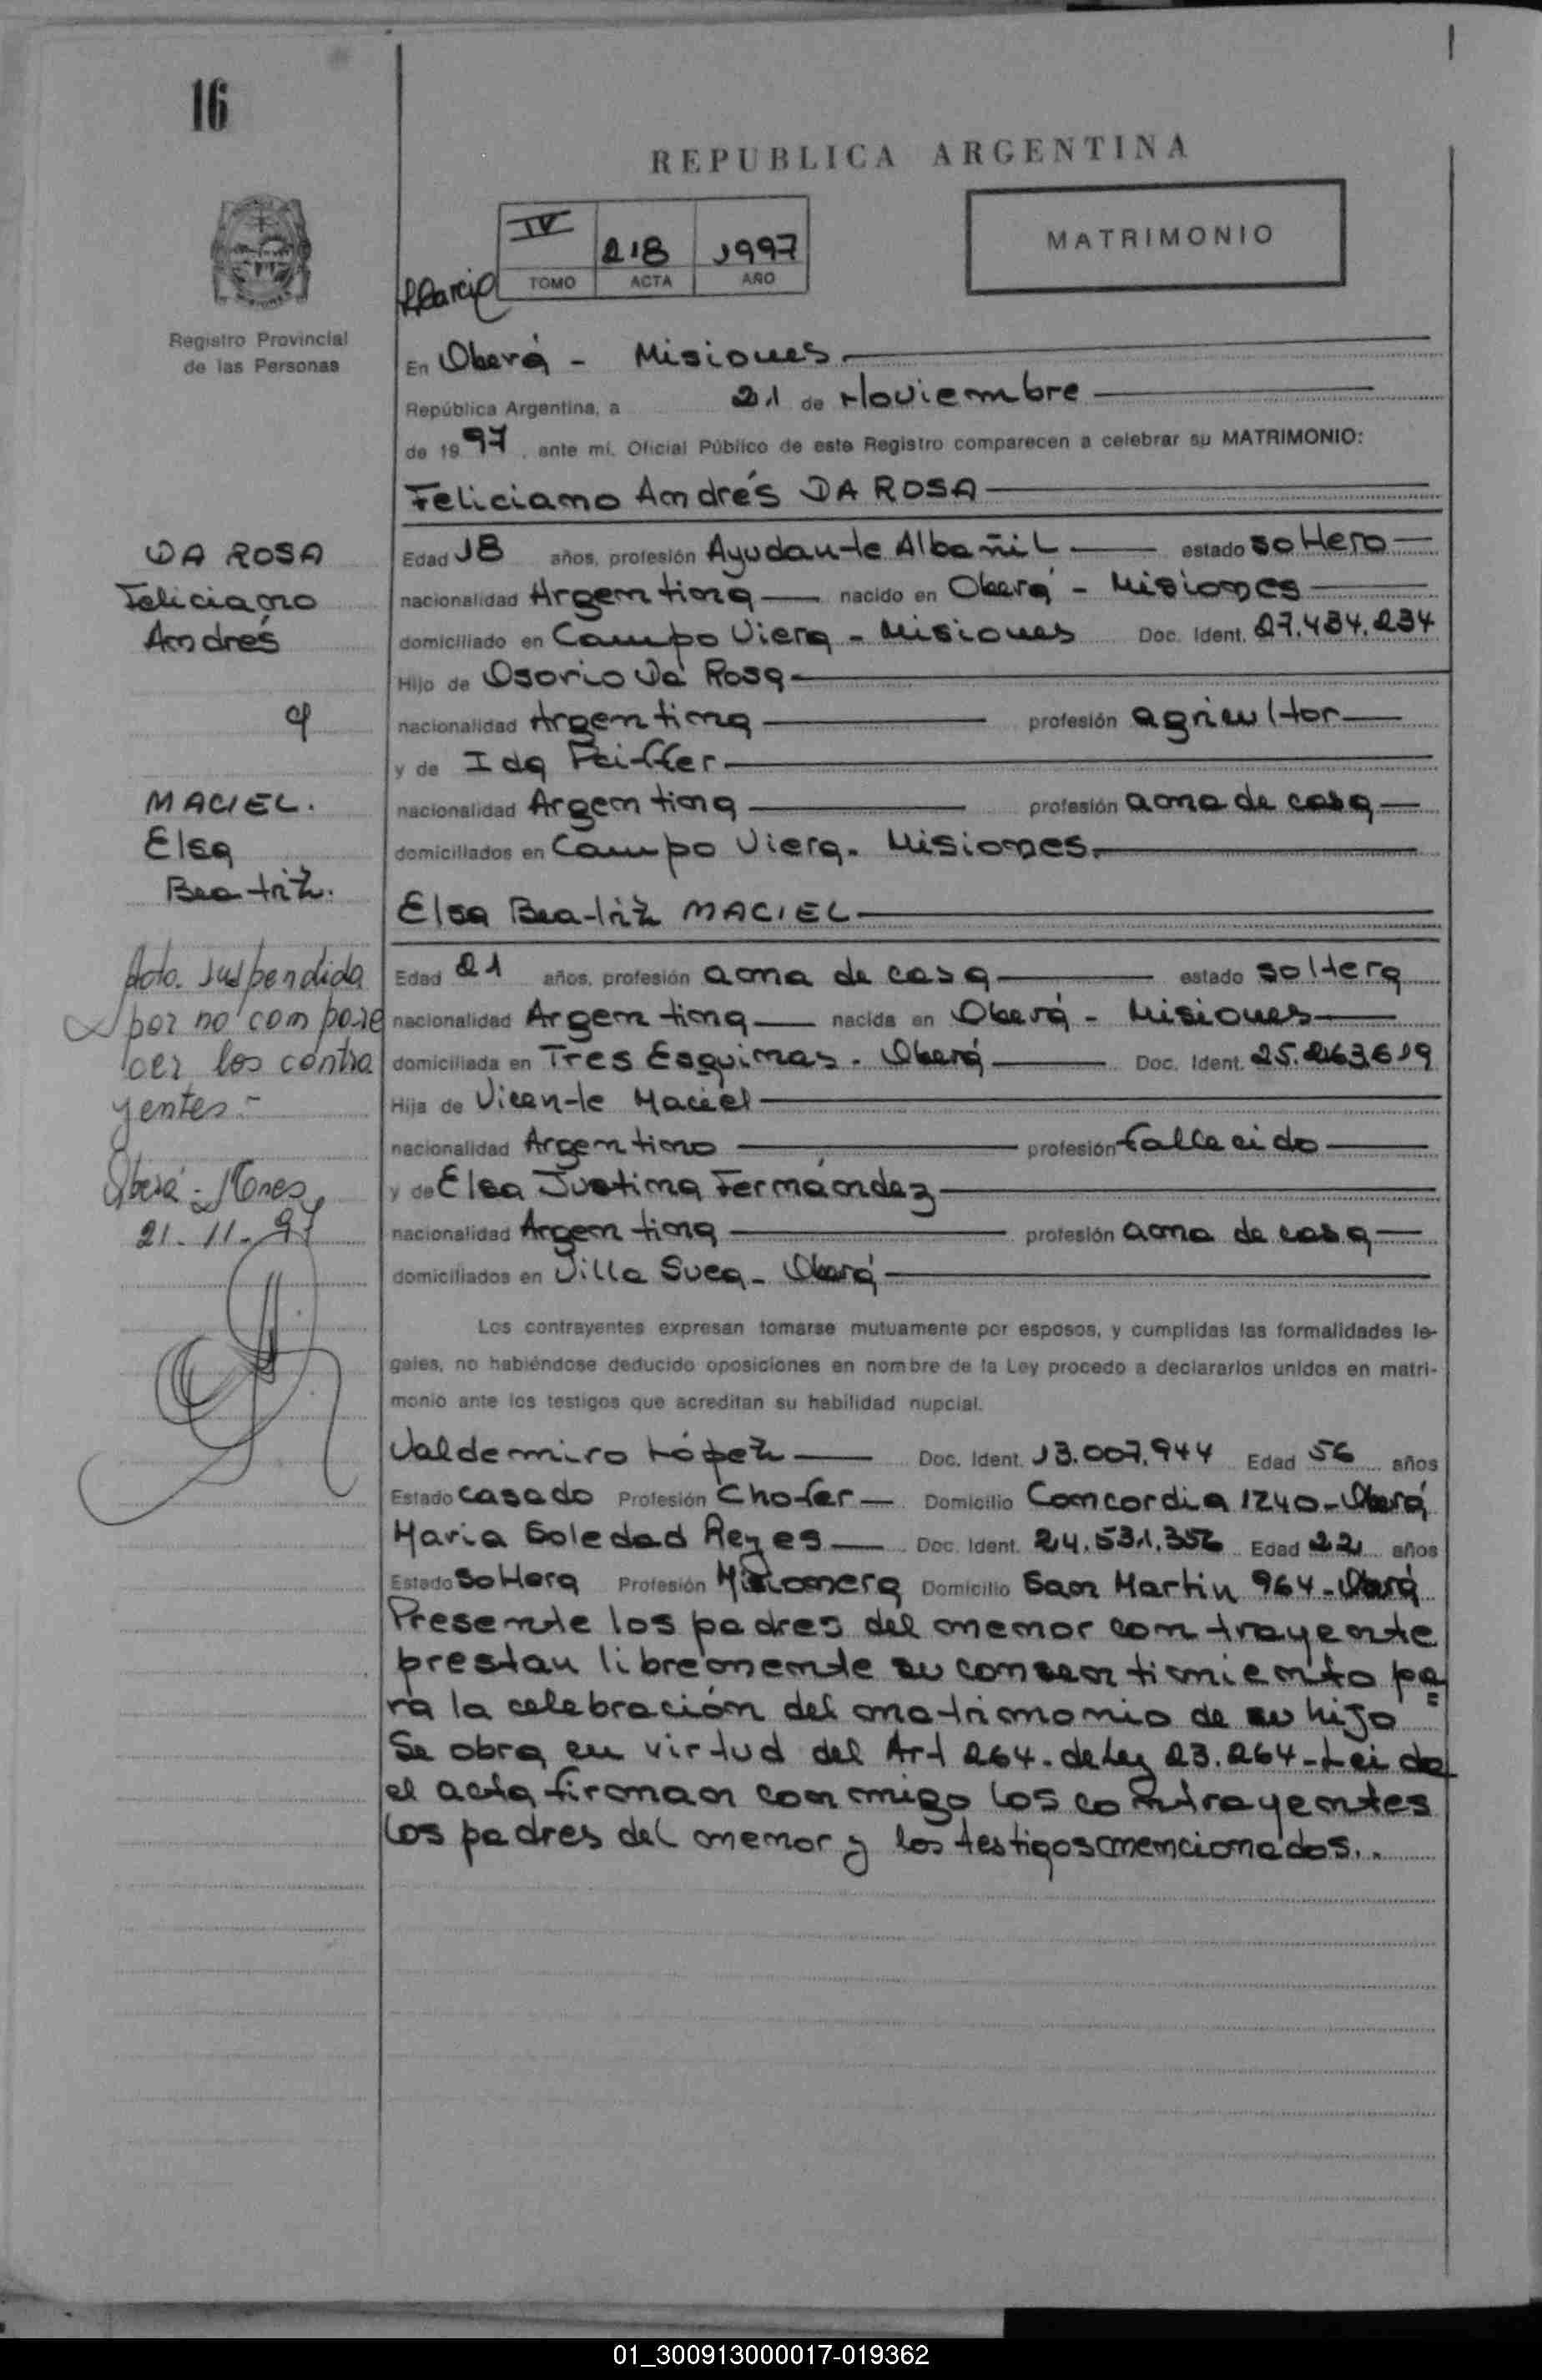 16
REPUBLICA ARGENTINA
IV 218 1997
TOMO ACTA AÑO
MATRIMONIO
Registro Provincial
de las Personas
En Oberá - Misiones
República Argentina, a 21 de Noviembre
de 1997, ante mí, Oficial Público de este Registro comparecen a celebrar su MATRIMONIO:
Feliciano Andrés DA ROSA
Edad 18 años, profesión Ayudante Albañil estado soltero
nacionalidad Argentina nacido en Oberá - Misiones
domiciliado en Campo Viera - Misiones Doc. Ident. 27.484.234
Hijo de Osorio Da Rosa
nacionalidad Argentina profesión agricultor
y de Ida Peiffer
nacionalidad Argentina profesión ama de casa
domiciliados en Campo Viera. Misiones.
Elsa Beatriz MACIEL
Edad 21 años, profesión ama de casa estado soltera
nacionalidad Argentina nacida en Oberá - Misiones
domiciliada en Tres Esquinas. Oberá Doc. Ident. 25.263.619
Hija de Vicente Maciel
nacionalidad Argentino profesión fallecido
y de Elsa Justina Fernández
nacionalidad Argentina profesión ama de casa
domiciliados en Villa Suea - Oberá
Los contrayentes expresan tomarse mutuamente por esposos, y cumplidas las formalidades le-
gales, no habiéndose deducido oposiciones en nombre de la Ley procedo a declararlos unidos en matri-
monio ante los testigos que acreditan su habilidad nupcial.
Valdemiro López Doc. Ident. 13.007.944 Edad 56 años
Estado casado Profesión Chofer Domicilio Concordia 1240 - Oberá
Maria Soledad Reyes Doc. Ident. 24.531.356 Edad 22 años
Estado Soltera Profesión Misionera Domicilio San Martin 964 - Oberá
Presente los padres del menor contrayente
prestan libremente su consentimiento pa
ra la celebración del matrimonio de su hijo
Se obra en virtud del Art 264. de Ley 23.264 - Leida
el acta firman conmigo los contrayentes
los padres del menor y los testigos mencionados..
DA ROSA
Feliciano
Andrés
MACIEL.
Elsa
Beatriz.
Acta. Suspendida
por no compare
cer los contra
yentes.-
Oberá - Mnes,
21-11-97
01_300913000017-019362